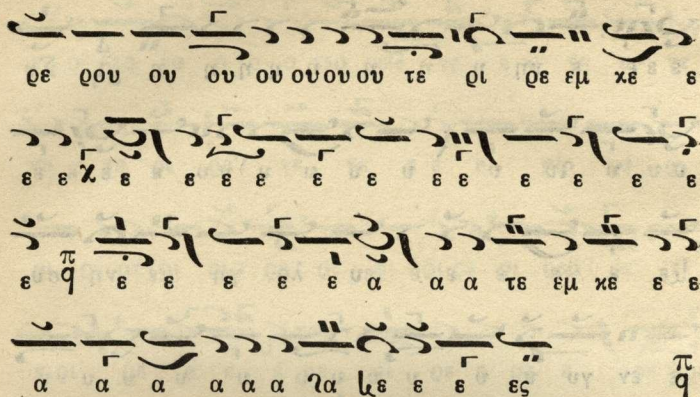 ρε ρου ου ου ου ου ου ου τε ρι ρε εμ κε ε ε
ε ε ε ε ε ε ε ε ε ε ε ε ε ε ε
ε π q ε ε ε ε ε α α α τε εμ κε ε ε
α α α α α α λα κε ε ε ες π q